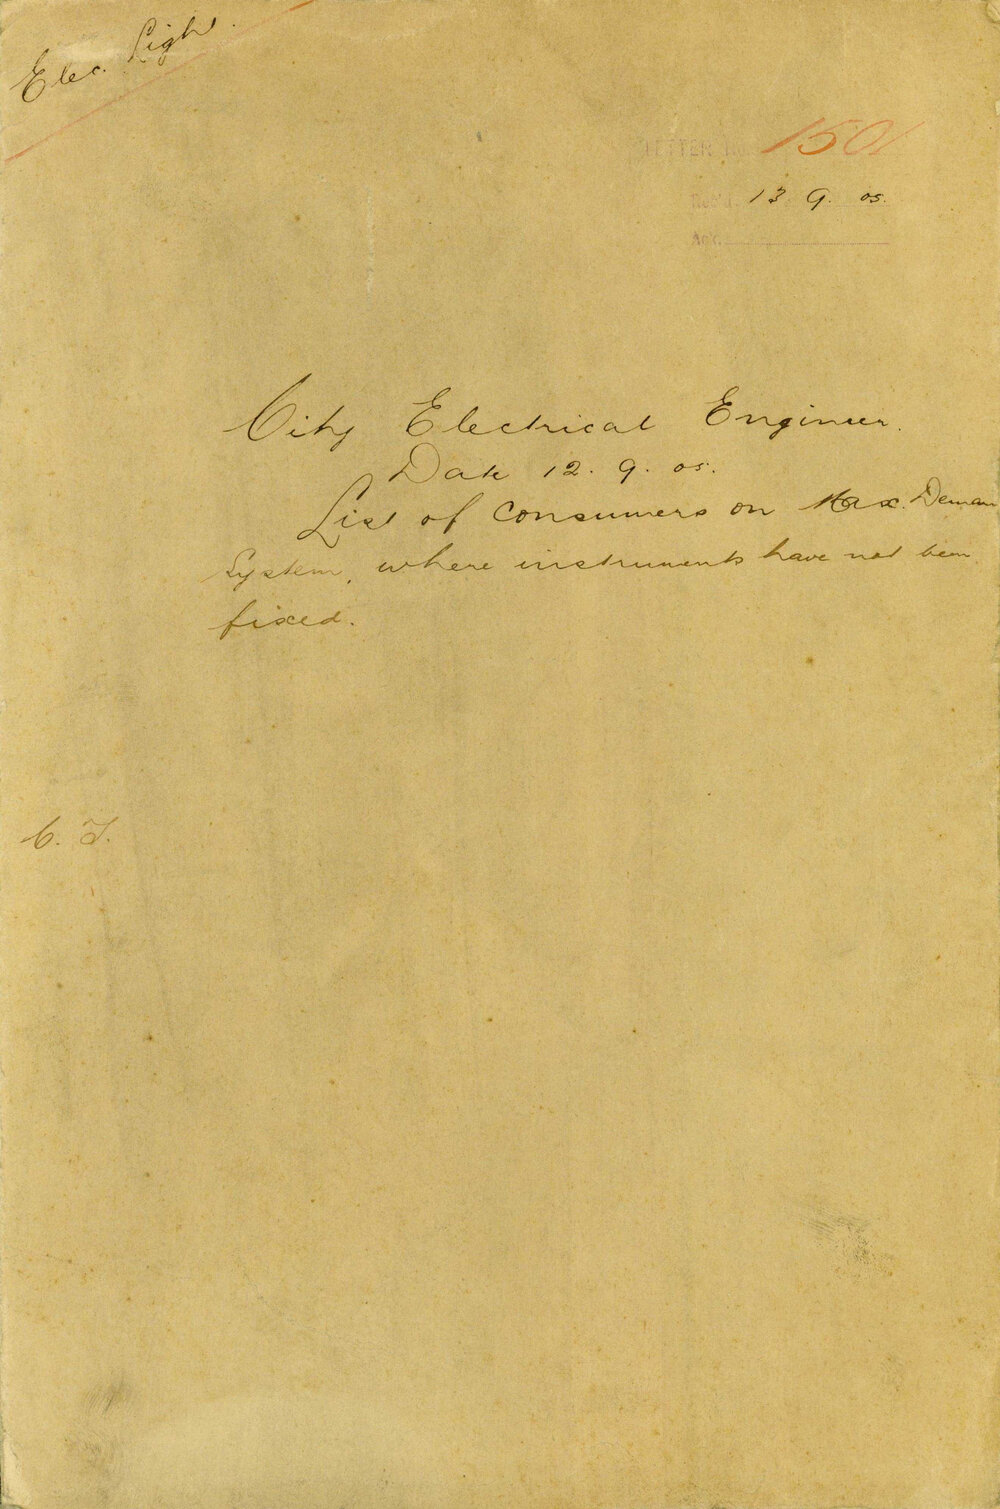 Elec. Light.
LETTER No. 1501
Rec'd. 13. 9. 05.
Ack.
City Electrical Engineer.
Date 12. 9. 05.
List of consumers on Max. Deman
System, where instruments have not been
fixed.
C. T.